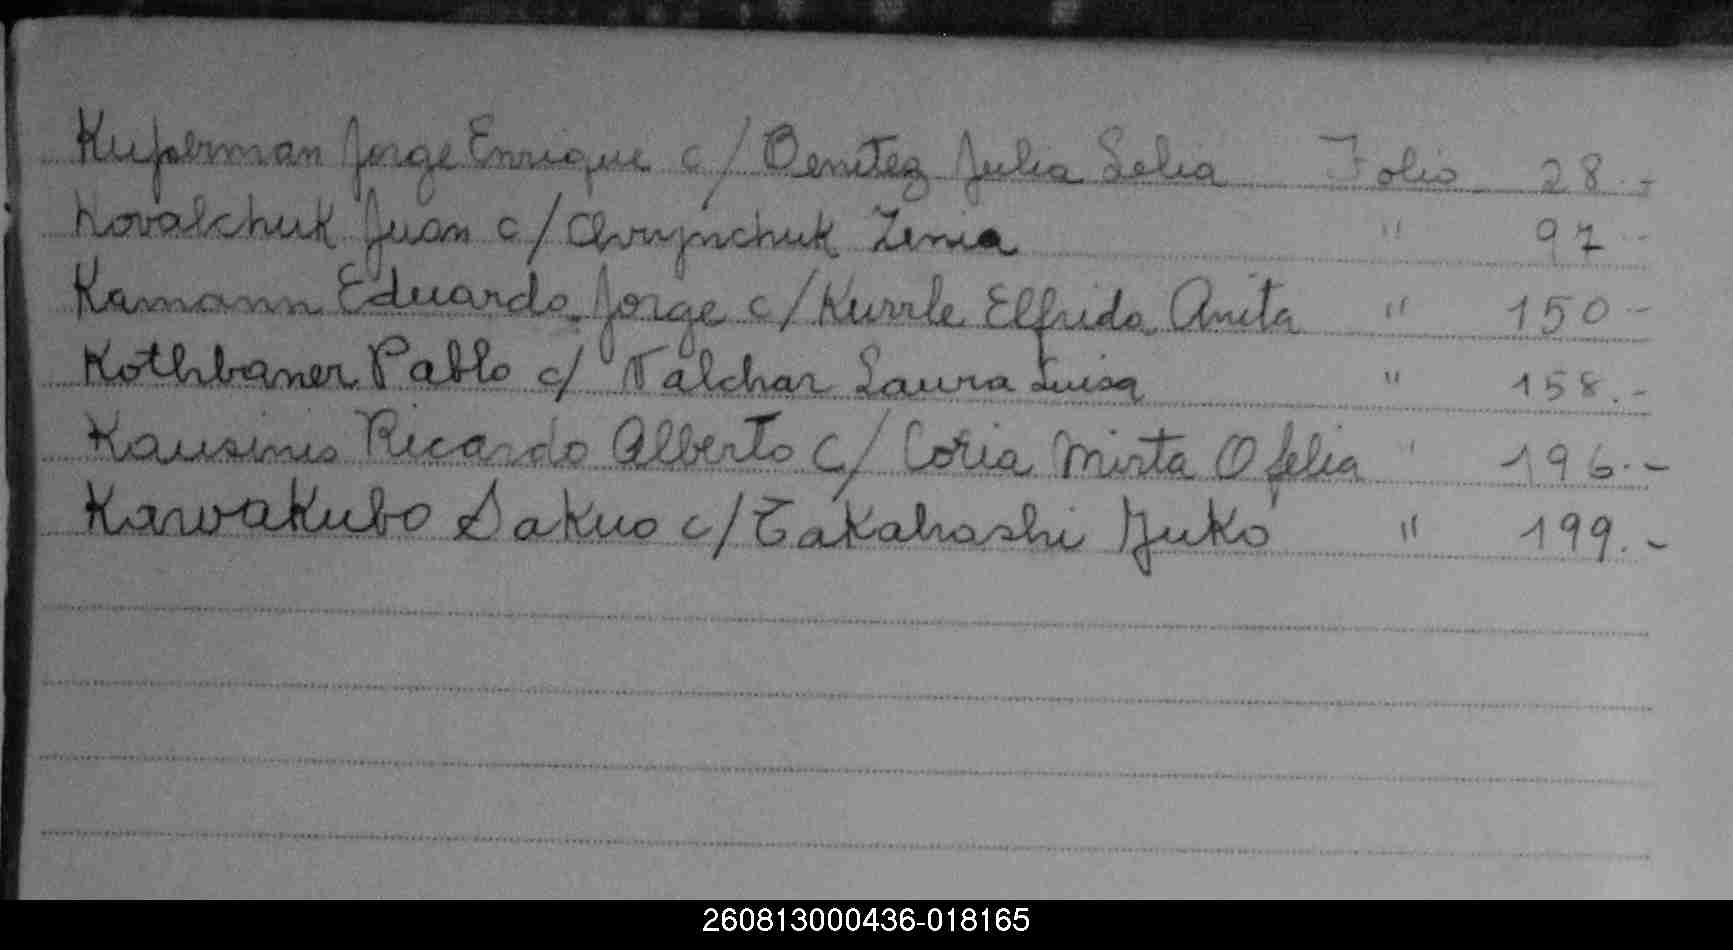 Kuperman Jorge Enrique c/ Benitez Julia Lelia Folio 28.-
Kovalchuk Juan c/ Zenia " 97.-
Kamann Eduardo Jorge c/ Kurrle Elfrida Anita " 150.-
Kothbaner Pablo c/ Valchar Laura Luisa " 158.-
Kausinis Ricardo Alberto c/ Coria Mirta Ofelia " 196.-
Kawakubo Sakuo c/ Takahashi Yuko " 199.-
260813000436-018165